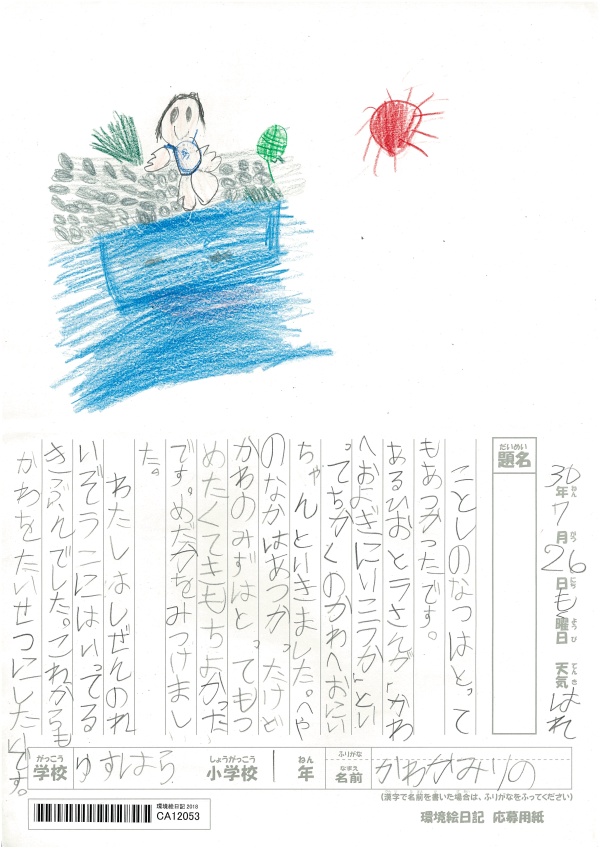 30年ねん7月がつ26日にちもく曜日ようび 天気てんきはれ
題名だいめい
ことしのなつはとって
もあつかったです。
あるひおとうさんが「かわ
へおよぎにいこうか」とい
ってちかくのかわへおにい
ちゃんといきました。へや
のなかはあつかったけど
かわのみずはとってもつ
めたくてきもちよかった
です。めだかをみつけまし
た。
わたしはしぜんのれ
いぞうこにはいってる
きぶんでした。これからも
かわをたいせつにしたいです。
がっこう学校 ゆすはら しょうがっこう小学校 1ねん年 ふりがな なまえ名前 かわかみりの
(漢字で名前を書いた場合は、ふりがなをふってください)
環境絵日記2018
CA12053
環境絵日記 応募用紙